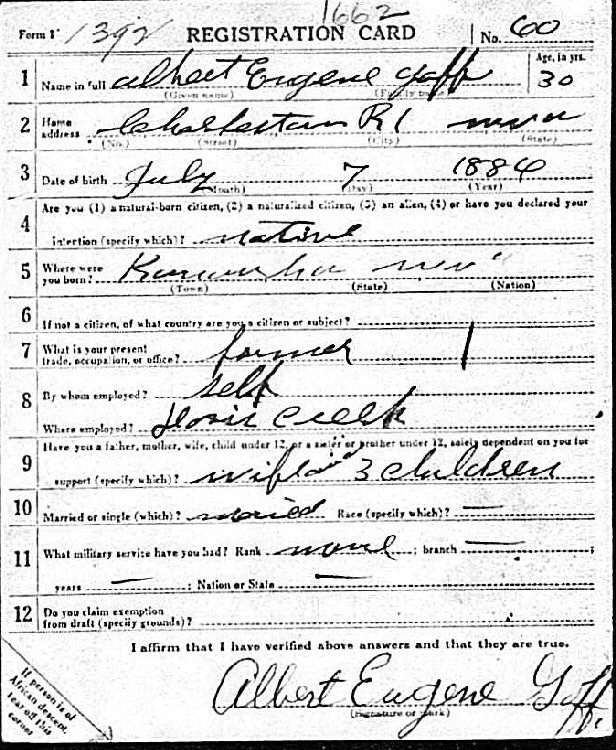 1662
Form 1 1392 REGISTRATION CARD No. 60
1 Name in full Albert Eugene Goff Age, in yrs. 30
(Given name) (Family name)
2 Home address Charleston R 1 W Va
(No.) (Street) (City) (State)
3 Date of birth July 7 1886
(Month) (Day) (Year)
4 Are you (1) a natural-born citizen, (2) a naturalized citizen, (3) an alien, (4) or have you declared your
intention (specify which)? native
5 Where were you born? Kanawha W Va
(Town) (State) (Nation)
6 If not a citizen, of what country are you a citizen or subject?
7 What is your present trade, occupation, or office? farmer
8 By whom employed? self
Where employed? Davis Creek
9 Have you a father, mother, wife, child under 12, or a sister or brother under 12, solely dependent on you for
support (specify which)? wife and 3 children
10 Married or single (which)? married Race (specify which)? —
11 What military service have you had? Rank none ; branch — ;
years — ; Nation or State —
12 Do you claim exemption
from draft (specify grounds)?
I affirm that I have verified above answers and that they are true.
Albert Eugene Goff
(Signature or mark)
If person is of
African descent,
tear off this
corner